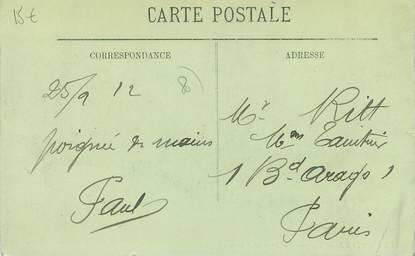 15€
CARTE POSTALE
CORRESPONDANCE
ADRESSE
25/9 12
8)
poignée de mains
Paul
Mr Ritt
Mon
1 Bd arago 1
Paris